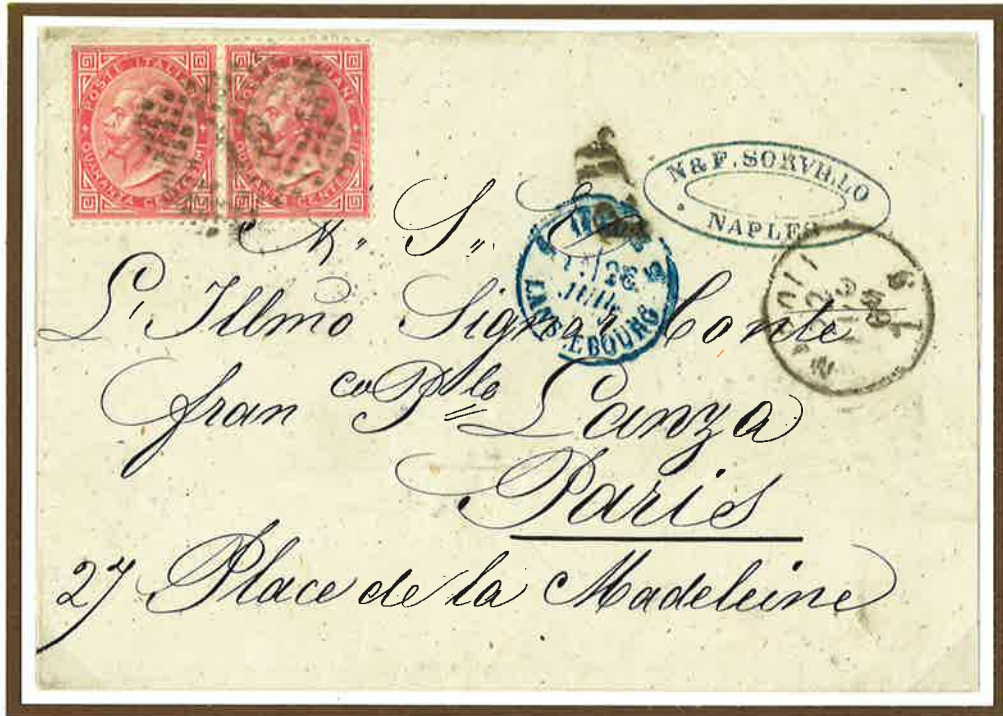 POSTE ITALIANE
QUARANTA CENTESIMI
POSTE ITALIANE
QUARANTA CENTESIMI
N & F. SORVILLO
NAPLES
LANSLEBOURG
NAPOLI
S.
L'Illmo Signor Conte
fran co Plo Lanza
Paris
27 Place de la Madeleine